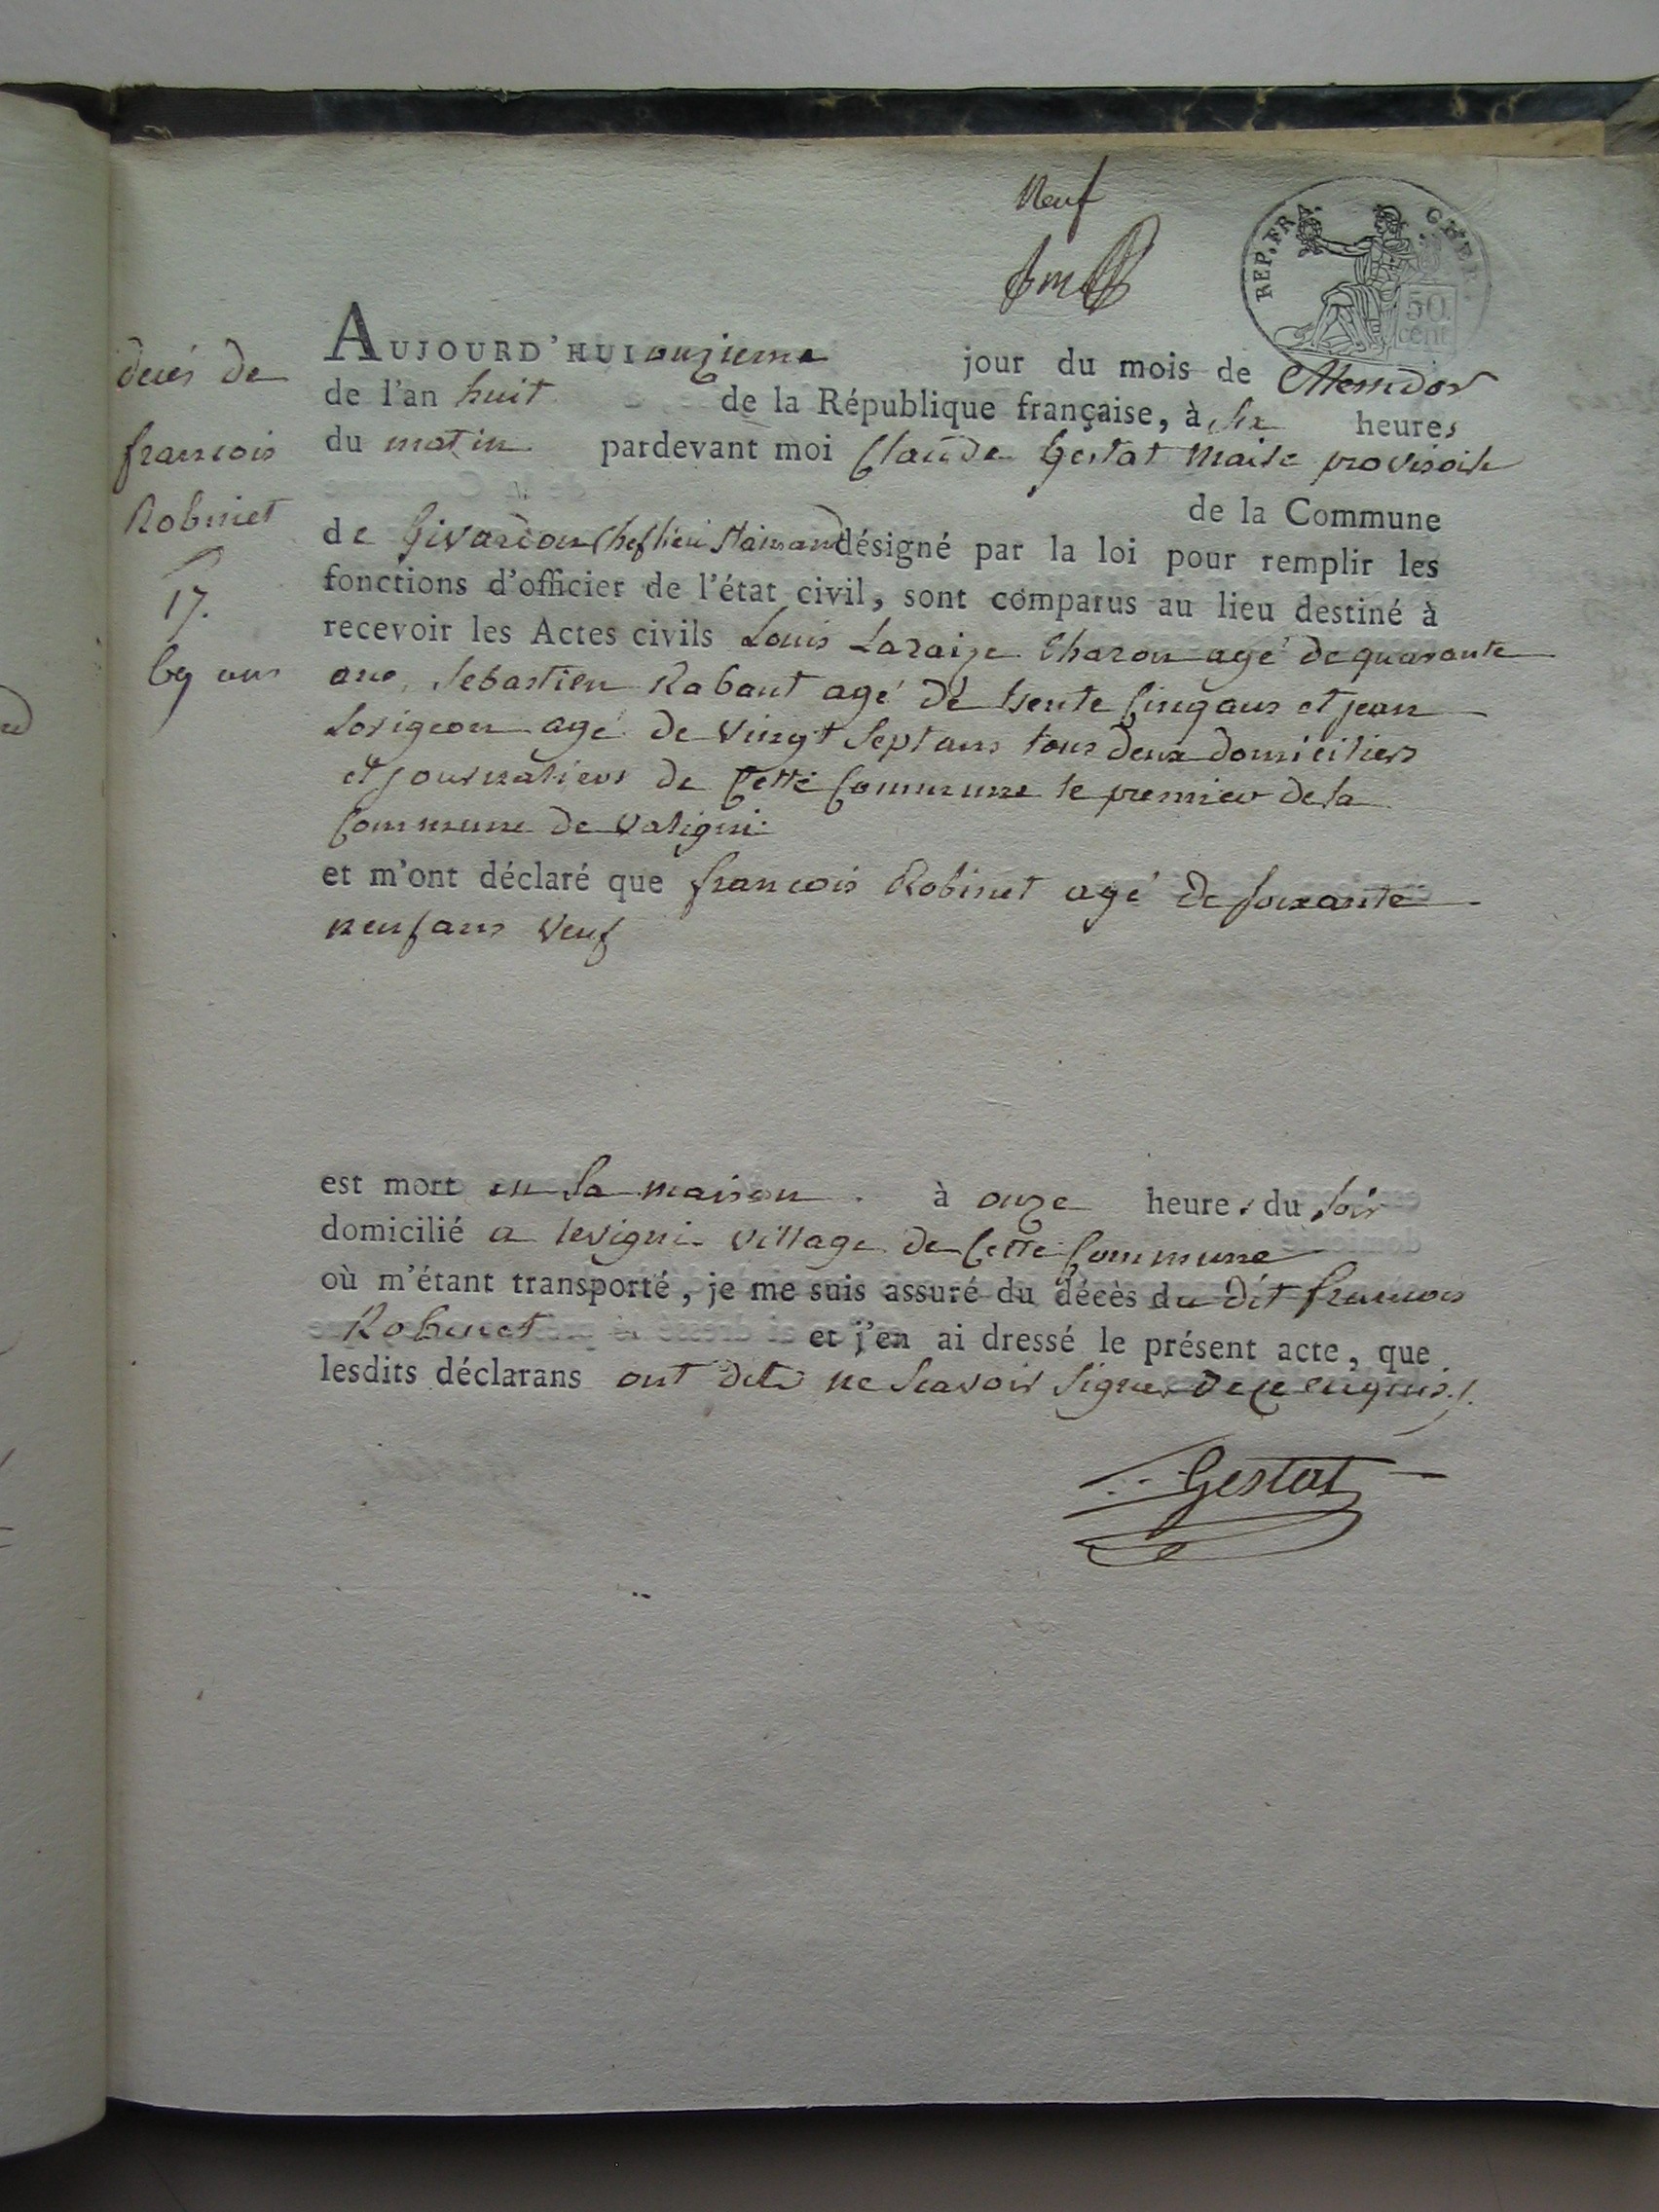 Neuf
REP. FRA.
CHER.
50.
cent
AUJOURD'HUI onzieme jour du mois de Messidor
de l'an huit de la République française, à six heures
du matin pardevant moi Claude Gestat Maire provisoire
de la Commune
de Givardon Chef lieu désigné par la loi pour remplir les
fonctions d'officier de l'état civil, sont comparus au lieu destiné à
recevoir les Actes civils Louis Laraize Charon agé de quarante
ans, Sebastien Rabaut agé de trente Cinq ans et jean
Lorigeon agé de vingt Sept ans tous deux domiciliers
et journaliers de Cette Commune le premier de la
Commune de Valigni
et m'ont déclaré que francois Robinet agé de soixante
neuf ans veuf
est mort en Sa maison à onze heures du soir
domicilié a levigni village de Cette Commune
où m'étant transporté, je me suis assuré du décès du dit francois
Robinet et j'en ai dressé le présent acte, que
lesdits déclarans ont dit ne Scavoir Signer de ce enquis
Gestat
decés de
francois
Robinet
17.
69 ans